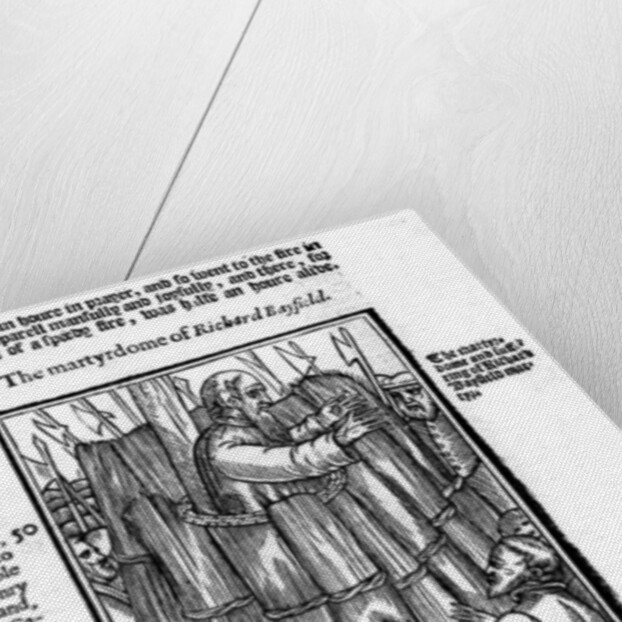 an houre in prayer, and so went to the fire in
parell manfully and joyfully, and there, for
of a speedy fire, was halfe an houre alive.
The martyrdome of Richard Bayfield.
The martyr-
dome and
of Richard
Bayfield mar-
tyr.
50